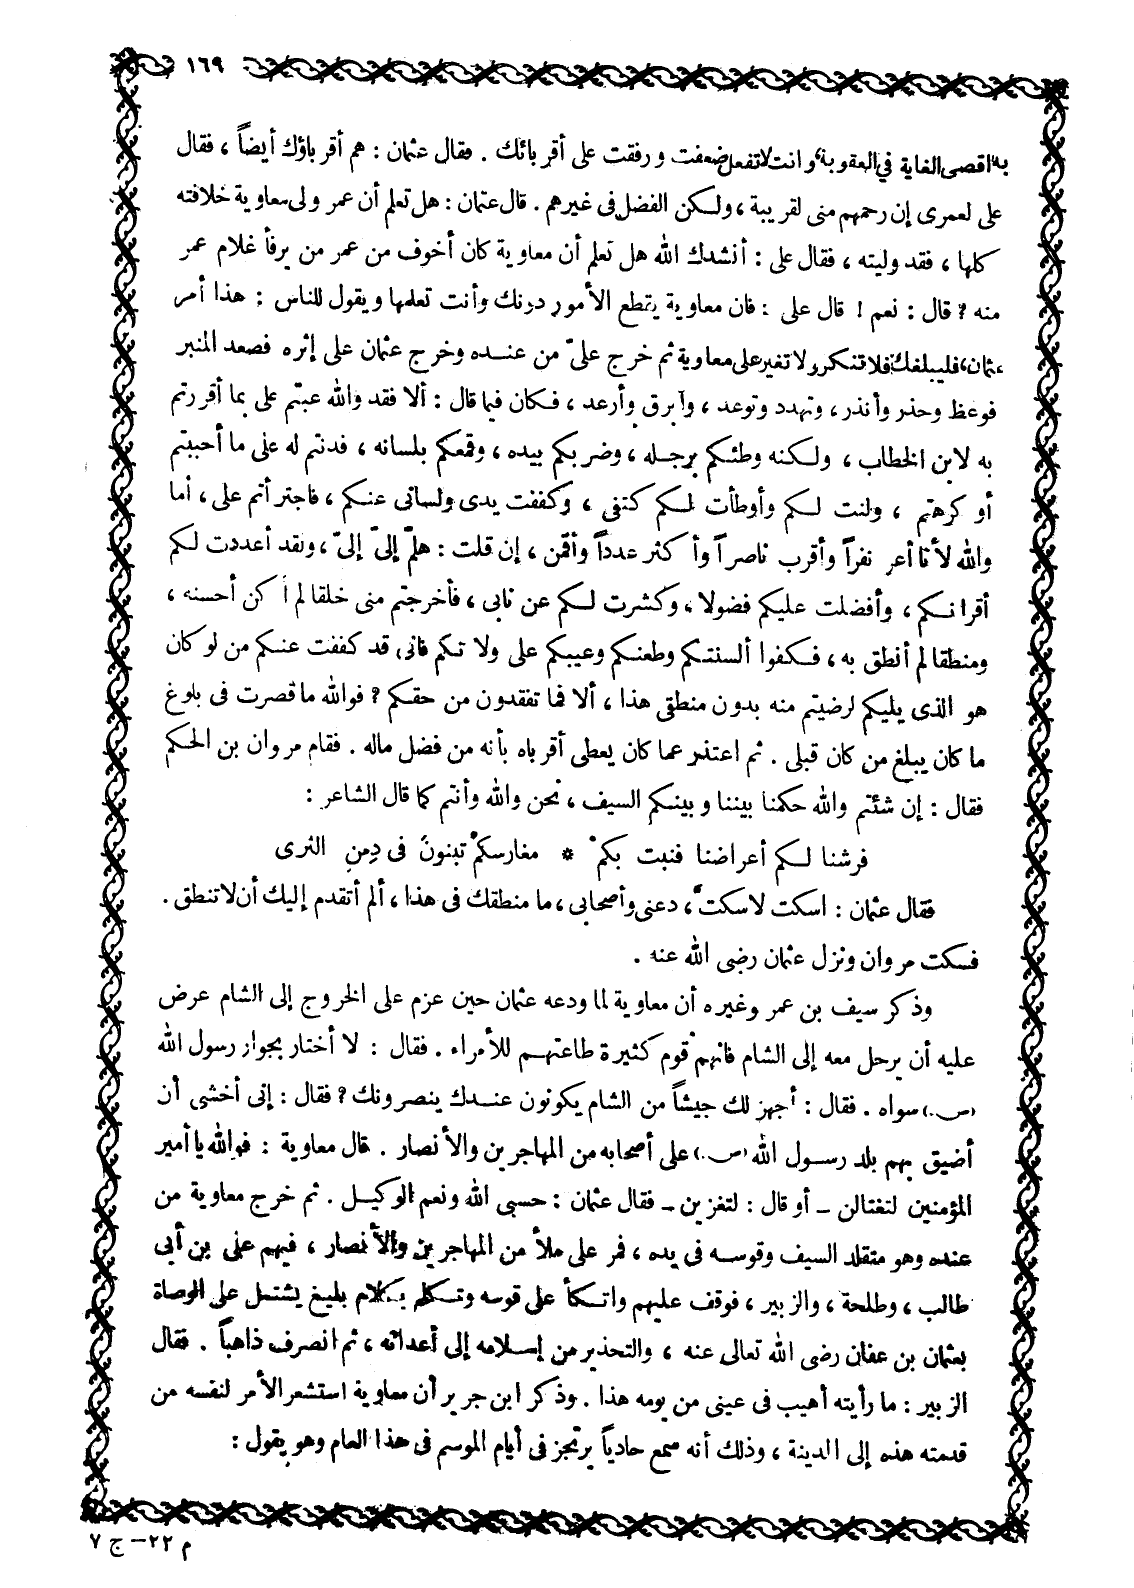 ١٦٩
به اقصى الغاية في العقوبة، وانت لا تفعل ضعفت ورفقت على أقربائك . فقال عثمان : هم أقرباؤك أيضاً ، فقال
على لعمرى إن رحمهم منى لقريبة ، ولكن الفضل فى غيرهم . قال عثمان : هل تعلم أن عمر ولى معاوية خلافته
كلها ، فقد وليته ، فقال على : أنشدك الله هل تعلم أن معاوية كان أخوف من عمر من يرفأ غلام عمر
منه ؟ قال : نعم ! قال على : فان معاوية يقطع الأمور دونك وأنت تعلمها ويقول للناس : هذا أمر
عثمان، فليبلغك فلا تنكر ولا تغير على معاوية ثم خرج علىّ من عنده وخرج عثمان على إثره فصعد المنبر
فوعظ وحذر وأنذر ، وتهدد وتوعد ، وأبرق وأرعد ، فكان فيما قال : ألا فقد والله عبتم على بما أقررتم
به لابن الخطاب ، ولكنه وطئكم برجله ، وضربكم بيده ، وقمعكم بلسانه ، فدنتم له على ما أحببتم
أو كرهتم ، ولنت لكم وأوطأت لكم كتفى ، وكففت يدى ولسانى عنكم ، فاجترأتم على ، أما
والله لأنا أعز نفراً وأقرب ناصراً وأكثر عدداً وأقمن ، إن قلت : هلمّ إلىّ إلىّ ، ولقد أعددت لكم
أقرانكم ، وأفضلت عليكم فضولا ، وكشرت لكم عن نابى ، فأخرجتم منى خلقا لم أكن أحسنه ،
ومنطقا لم أنطق به ، فكفوا ألسنتكم وطعنكم وعيبكم على ولاتكم فانى قد كففت عنكم من لو كان
هو الذى يليكم لرضيتم منه بدون منطقى هذا ، ألا فما تفقدون من حقكم ؟ فوالله ما قصرت فى بلوغ
ما كان يبلغ من كان قبلى . ثم اعتذر عما كان يعطى أقرباه بأنه من فضل ماله . فقام مروان بن الحكم
فقال : إن شئتم والله حكمنا بيننا وبينكم السيف ، نحن والله وأنتم كما قال الشاعر :
فرشنا لكم أعراضنا فنبت بكمْ * مغارسكمْ تبنونَ فى دِمنِ الثرى
فقال عثمان : اسكت لاسكت ، دعنى وأصحابى ، ما منطقك فى هذا ، ألم أتقدم إليك أن لا تنطق .
فسكت مروان ونزل عثمان رضى الله عنه .
وذكر سيف بن عمر وغيره أن معاوية لما ودعه عثمان حين عزم على الخروج إلى الشام عرض
عليه أن يرحل معه إلى الشام فانهم قوم كثيرة طاعتهم للأمراء . فقال : لا أختار بجوار رسول الله
(ص.) سواه . فقال : أجهز لك جيشاً من الشام يكونون عندك ينصرونك ؟ فقال : إنى أخشى أن
أضيق بهم بلد رسول الله (ص.) على أصحابه من المهاجرين والأنصار . قال معاوية : فوالله يا أمير
المؤمنين لتغتالن - أو قال : لتغزين - فقال عثمان : حسبى الله ونعم الوكيل . ثم خرج معاوية من
عنده وهو متقلد السيف وقوسه فى يده ، فمر على ملأ من المهاجرين والأنصار ، فيهم على بن أبى
طالب ، وطلحة ، والزبير ، فوقف عليهم واتكأ على قوسه وتكلم بكلام بليغ يشتمل على الوصاة
بعثمان بن عفان رضى الله تعالى عنه ، والتحذير من إسلامه إلى أعدائه ، ثم انصرف ذاهباً . فقال
الزبير : ما رأيته أهيب فى عينى من يومه هذا . وذكر ابن جرير أن معاوية استشعر الأمر لنفسه من
قدمته هذه إلى المدينة ، وذلك أنه سمع حادياً يرتجز فى أيام الموسم فى هذا العام وهو يقول :
م ٢٢ - ج ٧